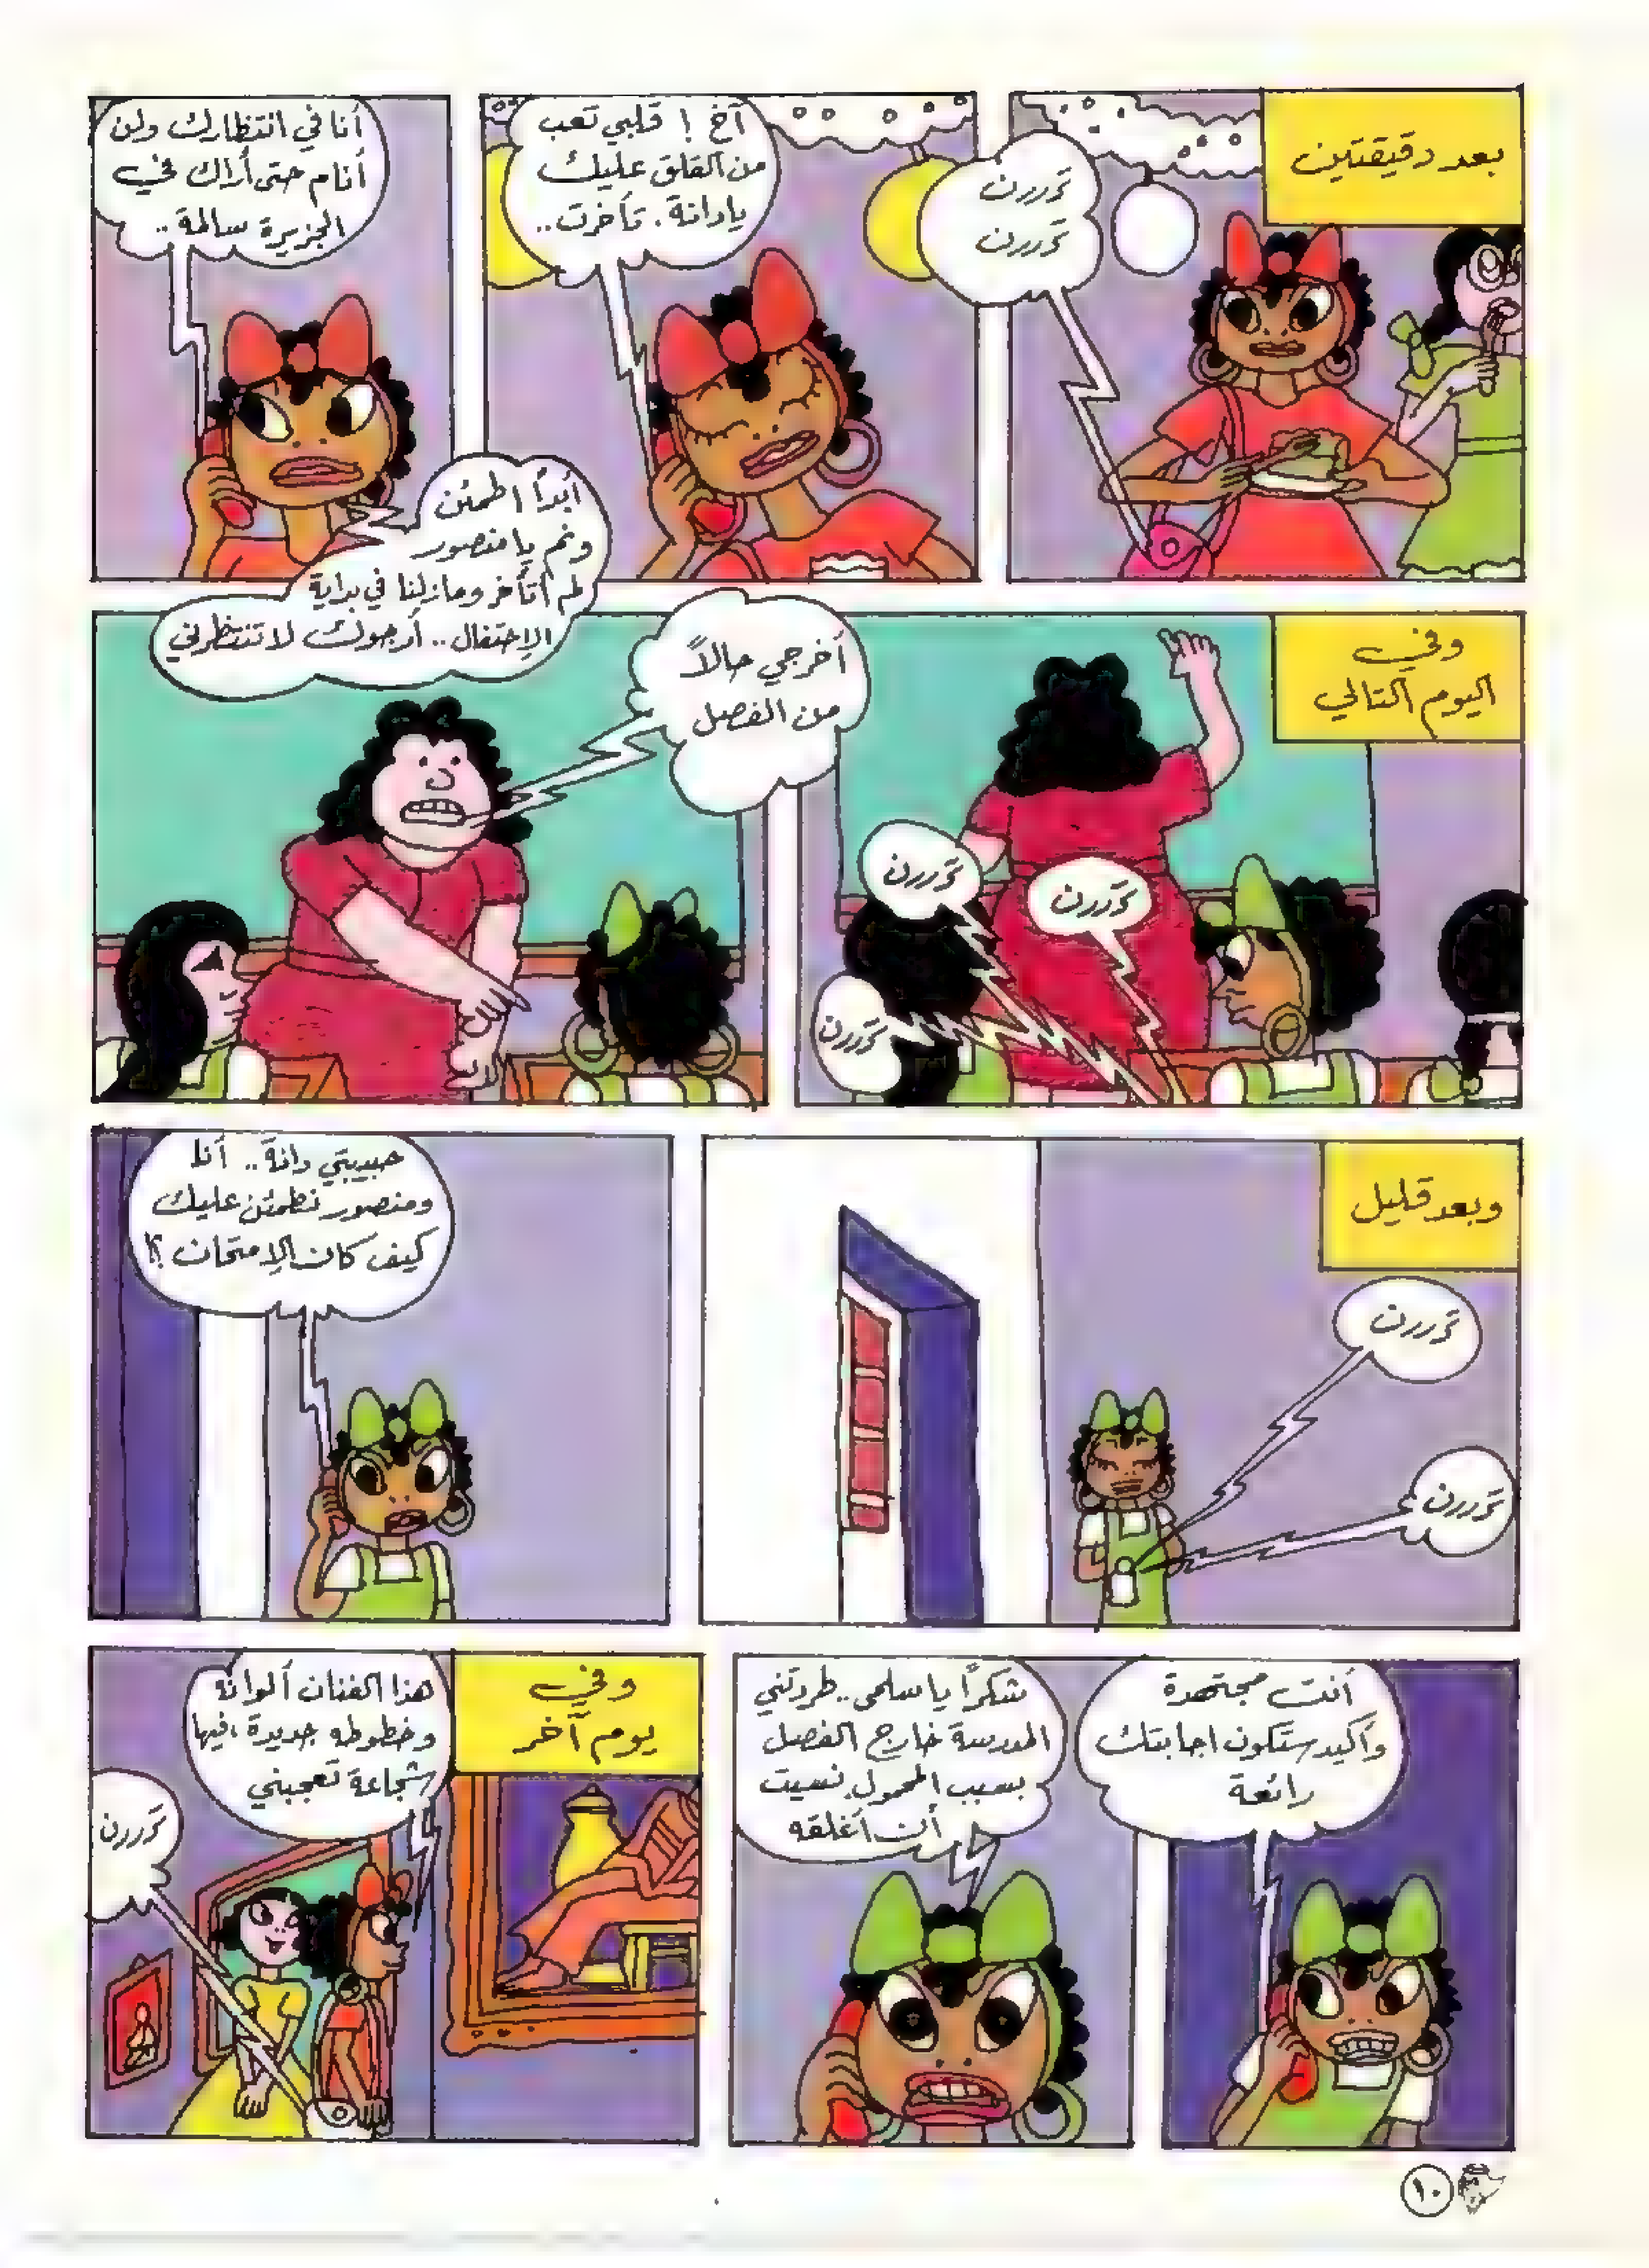 بعد دقيقتين
تررررن
تررررن
آخ ! قلبي تعب
من القلق عليك
يا دانة . تأخرت ..
أنا في انتظارك ولن
أنام حتى أراك في
الجزيرة سالمة ..
أبدًا اطمئن
ونم يا منصور
لم أتأخر ومازلنا في بداية
الإحتفال .. أرجوك لا تنتظرني
وفي
اليوم التالي
تررررن
تررررن
تررررن
أخرجي حالاً
من الفصل
وبعد قليل
تررررن
تررررن
حبيبتي دانة .. أنا
ومنصور نطمئن عليك
كيف كان الإمتحان ؟!
أنت مجتهدة
وأكيد ستكون اجابتك
رائعة
شكرًا يا سلمى .. طردتني
المدرسة خارج الفصل
بسبب المحمول . نسيت
أن أغلقه
وفي
يوم آخر
هذا الفنان ألوانه
وخطوطه جديدة ، فيها
شجاعة تعجبني
تررررن
١٠